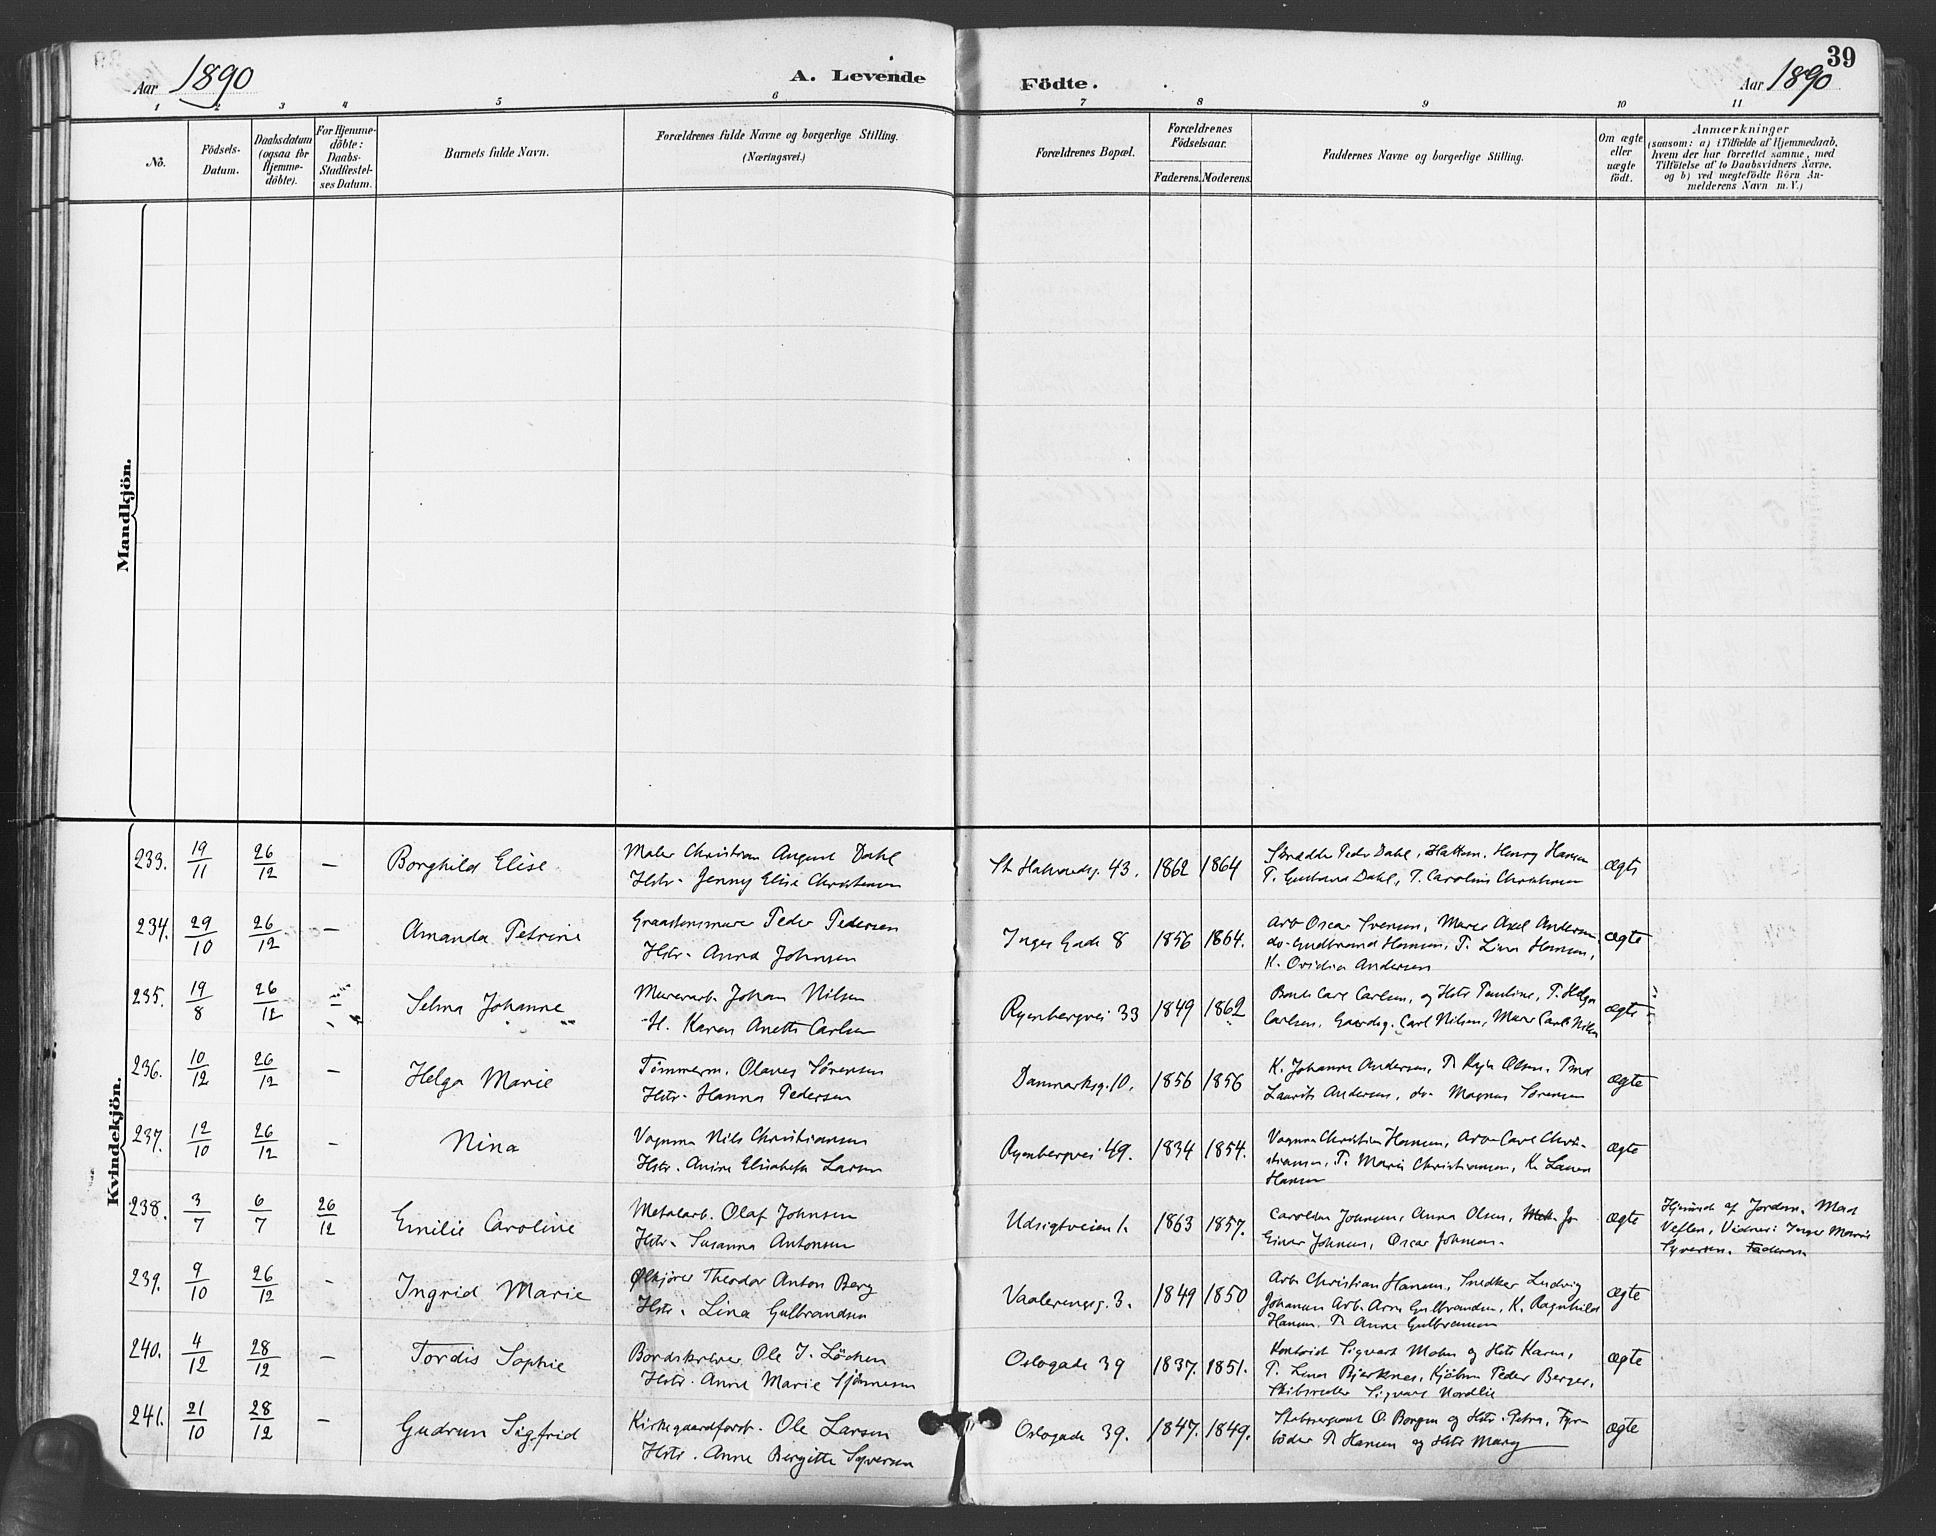 39
Aar 1890
A. Levende Födte.
Aar 1890
1 2 3 4 5 6 7 8 9 10 11
No.
Födsels-Datum.
Daabsdatum (ogsaa for Hjemme-döbte).
For Hjemme-döbte: Daabs-Stadfæstel-ses Datum.
Barnets fulde Navn.
Forældrenes fulde Navne og borgerlige Stilling.
(Næringsvei.)
Forældrenes Bopæl.
Forældrenes Födselsaar.
Faderens. Moderens.
Faddernes Navne og borgerlige Stilling.
Om ægte eller uægte födt.
Anmærkninger
(saasom: a) i Tilfælde af Hjemmedaab,
hvem der har forrettet samme, med
Tilföielse af to Daabsvidners Navne,
og b) ved uægtefödte Börn An-
melderens Navn m. V.)
Mandkjön.
Kvindekjön.
233. 19/11 26/12 — Borghild Elise
Maler Christian August Dahl
Hstr. Jenny Elise Christensen
St Halvardsg. 43. 1862 1864
Peder Dahl, Henry Hansen
T. Gustava Dahl, T. Caroline Christensen
ægte
234. 29/10 26/12 — Amanda Petrine
Graastensmurer Peder Pedersen
Hstr. Anna Johnsen
Inges Gade 8 1856 1864.
Arb Oscar Svensen, Murer Axel Andersen,
do. Gudbrand Hansen, T. Lina Hansen,
K. Ovidia Andersen
ægte
235. 19/8 26/12 — Selma Johanne
Murerarb. Johan Nilsen
H. Karen Anette Carlsen
Ryenbergvei 33 1849 1862
Carl Carlsen, og Hstr Pauline, T. Helga
Carlsen, Gaardsg. Carl Nilsen, Murer Carl Nilsen
ægte
236. 10/12 26/12 — Helga Marie
Tömmerm. Olaves Sörensen
Hstr. Hanna Pedersen
Danmarksg. 10. 1856 1856
K. Johanne Andersen, Olsen,
Laurits Andersen, do. Magnus Sörensen
ægte
237. 12/10 26/12 — Nina
Vognm Nils Christiansen
Hstr. Anine Elisabeth Larsen
Ryenbergvei 49. 1834 1854.
Vognm Christian Hansen, Arb. Carl Chri-
stiansen, T. Marie Christiansen, K. Laura
Hansen
ægte
238. 3/7 6/7 26/12 Emilie Caroline
Metalarb. Olaf Johnsen
Hstr. Susanna Antonsen
Udsigtveien 1. 1863 1857.
Caroline Johnsen, Anna Olsen,
Einar Johnsen, Oscar Johnsen.
ægte
Hjemmed. af Jordm. Mad
Veflen, Vidner: Inger Marie
Syversen, Faderen
239. 9/10 26/12 — Ingrid Marie
Ölkjörer Theodor Anton Berg
Hstr. Lina Gulbrandsen
Vaalerengg. 3. 1849 1850
Arb. Christian Hansen, Snedker Ludvig
Johansen Arb. Arne Gulbrandsen, K. Ragnhild
Hansen, Anne Gulbrandsen
ægte
240. 4/12 28/12 — Tordis Sophie
Bordskriver Ole J. Löchen
Hstr. Anne Marie
Oslogade 39 1837. 1851.
Sigvart Mohn og Hstr Karen,
T. Lena Bjerknes, Kjöbm Peder Berger,
Skibsreder Sigvart Nordlie
ægte
241. 21/10 28/12 — Gudrun Sigfrid
Kirkegaardforst. Ole Larsen
Hstr. Anne Birgitte Syversen
Oslogade 39. 1847. 1849.
O. Bongen og Hstr. Petra, Fyr-
böder Hansen og Hstr Mary
ægte